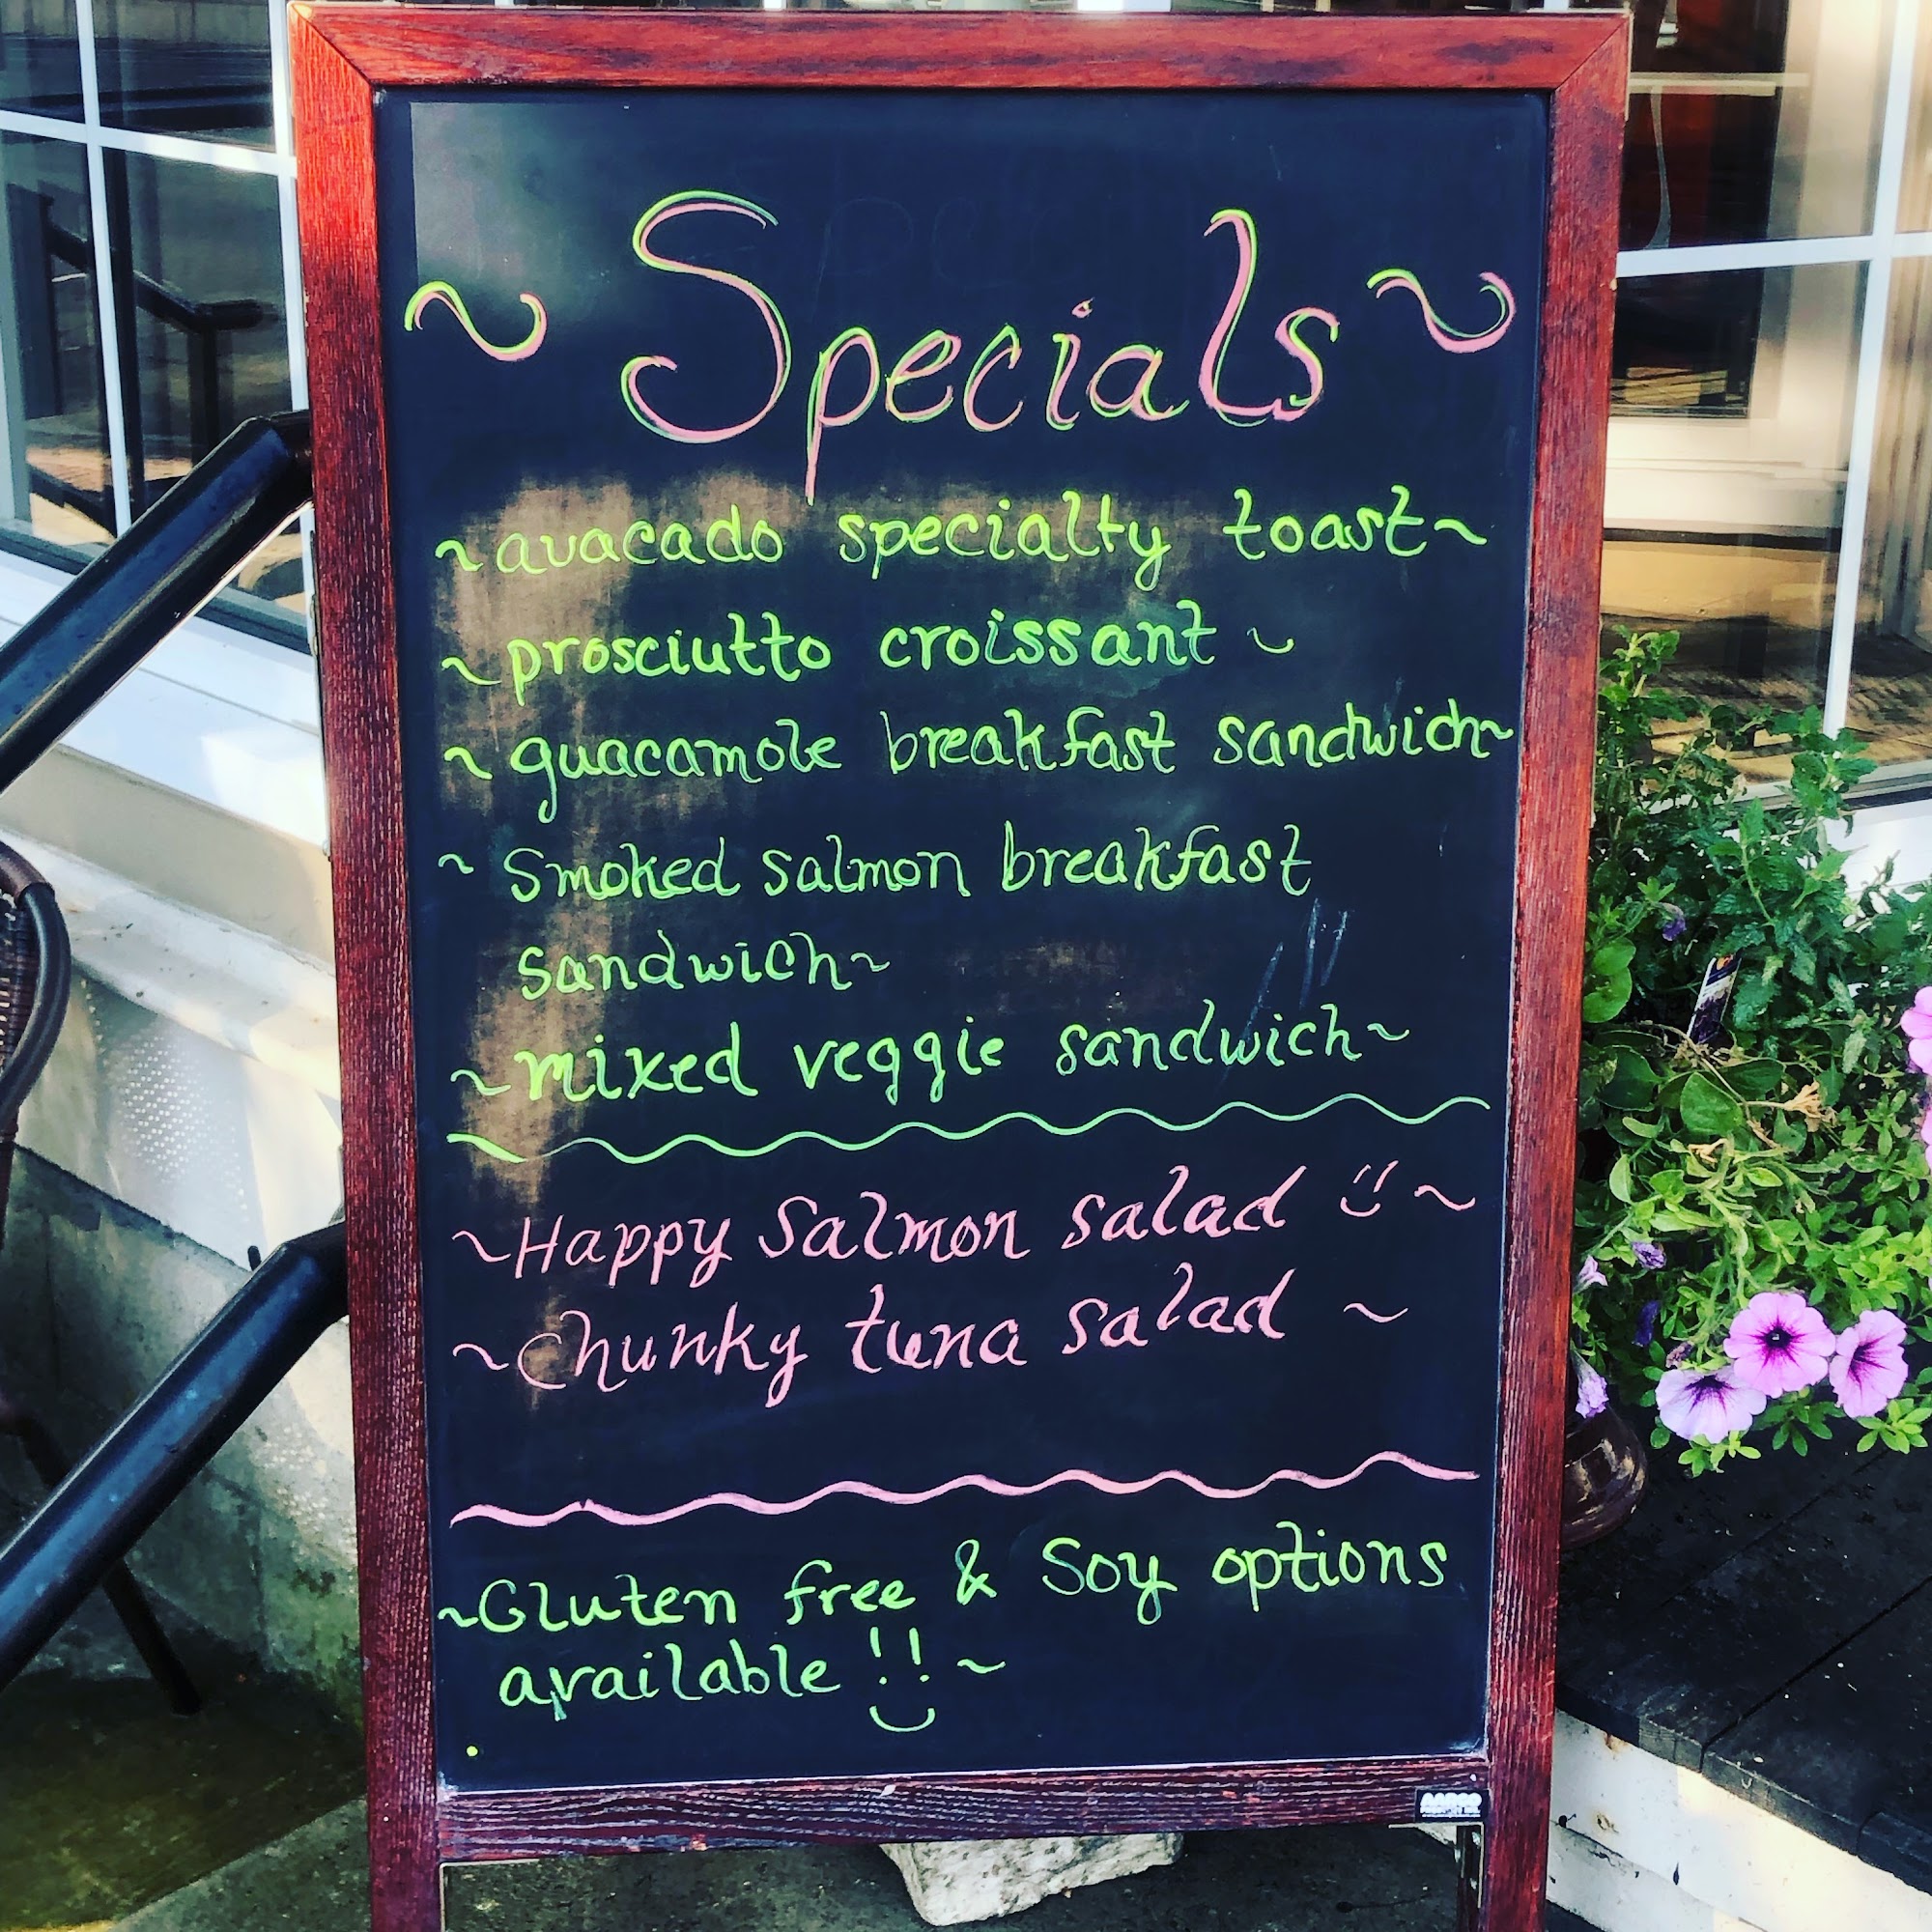 ~ Specials ~
~ avacado specialty toast ~
~ prosciutto croissant ~
~ guacamole breakfast sandwich ~
~ Smoked salmon breakfast
sandwich ~
~ mixed veggie sandwich ~
~ Happy Salmon salad :) ~
~ Chunky tuna salad ~
~ Gluten free & Soy options
available !! ~